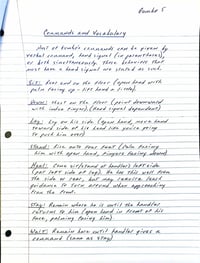 Bomber 5
Commands and Vocabulary
Most of Bomber's commands can be given by
verbal command, hand signal (in parentheses),
or both simultaneously. Those behaviors that
must have a hand signal are stated as such.
Sit: Rear end on the floor (open hand with
palm facing up - lift hand a little).
Down: Chest on the floor (point downward
with index finger). (Hand signal dependent)
Lay: Lay on his side (open hand, move hand
toward side of his head like you're going
to push him over)
Stand: Rise onto four feet (palm facing
him with open hand, fingers facing down)
Heel: Come sit/stand at handler's left side
(per left side of leg). He does this well from
the side or rear, but may require touch
guidance to turn around when approaching
from the front.
Stay: Remain where he is until the handler
returns to him (open hand in front of his
face, palm facing him)
Wait: Remain here until handler gives a
command (same as stay)